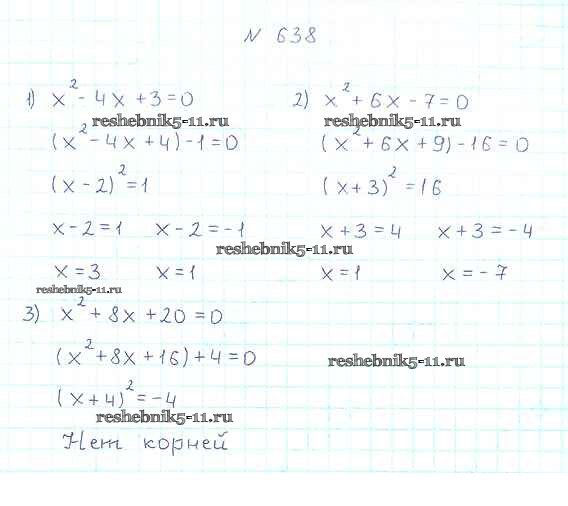 N 638
1) x² - 4x + 3 = 0
reshebnik5-11.ru
(x² - 4x + 4) - 1 = 0
(x - 2)² = 1
x - 2 = 1 x - 2 = -1
x = 3 x = 1
2) x² + 6x - 7 = 0
reshebnik5-11.ru
(x² + 6x + 9) - 16 = 0
(x + 3)² = 16
x + 3 = 4 x + 3 = -4
x = 1 x = -7
reshebnik5-11.ru
reshebnik5-11.ru
3) x² + 8x + 20 = 0
(x² + 8x + 16) + 4 = 0
reshebnik5-11.ru
(x + 4)² = -4
reshebnik5-11.ru
Нет корней